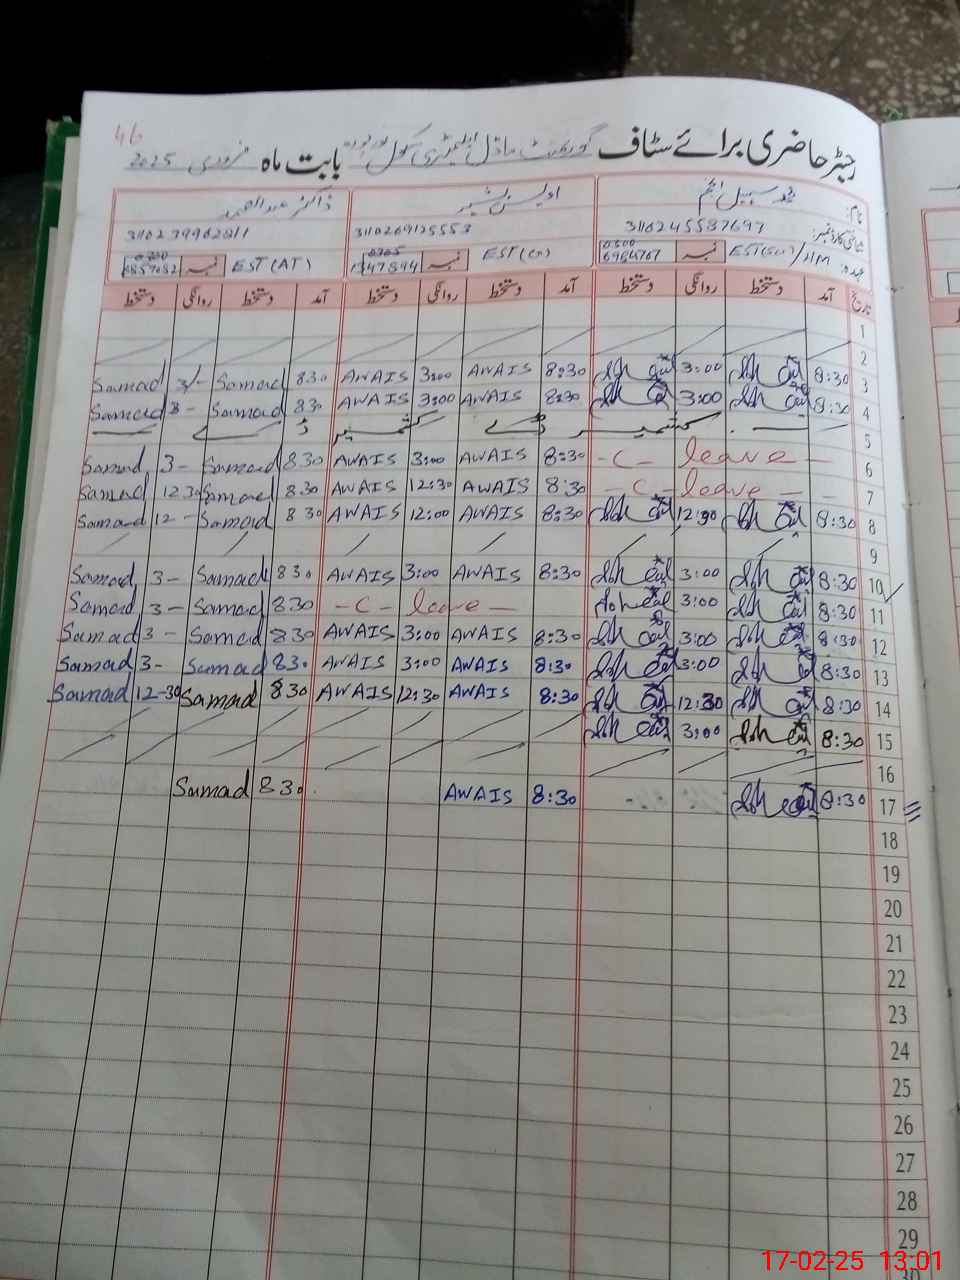 46
رجسٹر حاضری برائے سٹاف گورنمنٹ ماڈل ایلیمنٹری سکول بابت ماہ فروری 2025
نام: محمد سہیل انجم اویس بشیر ڈاکٹر عبدالصمد
شناختی کارڈ نمبر: 3110245587697 3110269125553
عہدہ: EST(Gen)/HM نمبر EST(G) نمبر EST(AT) نمبر
تاریخ آمد دستخط روانگی دستخط آمد دستخط روانگی دستخط آمد دستخط روانگی دستخط
1
2
3 8:30 3:00 8:30 AWAIS 3:00 AWAIS 830 Samad 3/- Samad
4 8:30 3:00 8:30 AWAIS 3:00 AWAIS 830 Samad 3- Samad
5 کشمیر ڈے کشمیر ڈے
6 -C- leave - 8:30 AWAIS 3:00 AWAIS 830 Samad 3- Samad
7 -C- leave - 8:30 AWAIS 12:30 AWAIS 830 Samad 12.30 Samad
8 8:30 12:30 8:30 AWAIS 12:00 AWAIS 830 Samad 12- Samad
9
10 8:30 3:00 8:30 AWAIS 3:00 AWAIS 830 Samad 3- Samad
11 8:30 3:00 -C- leave - 830 Samad 3- Samad
12 8:30 3:00 8:30 AWAIS 3:00 AWAIS 830 Samad 3- Samad
13 8:30 3:00 8:30 AWAIS 3:00 AWAIS 830 Samad 3- Samad
14 8:30 12:30 8:30 AWAIS 12:30 AWAIS 830 Samad 12-30 Samad
15 8:30 3:00
16
17 8:30 8:30 AWAIS 830 Samad
18
19
20
21
22
23
24
25
26
27
28
29
30
17-02-25 13:01